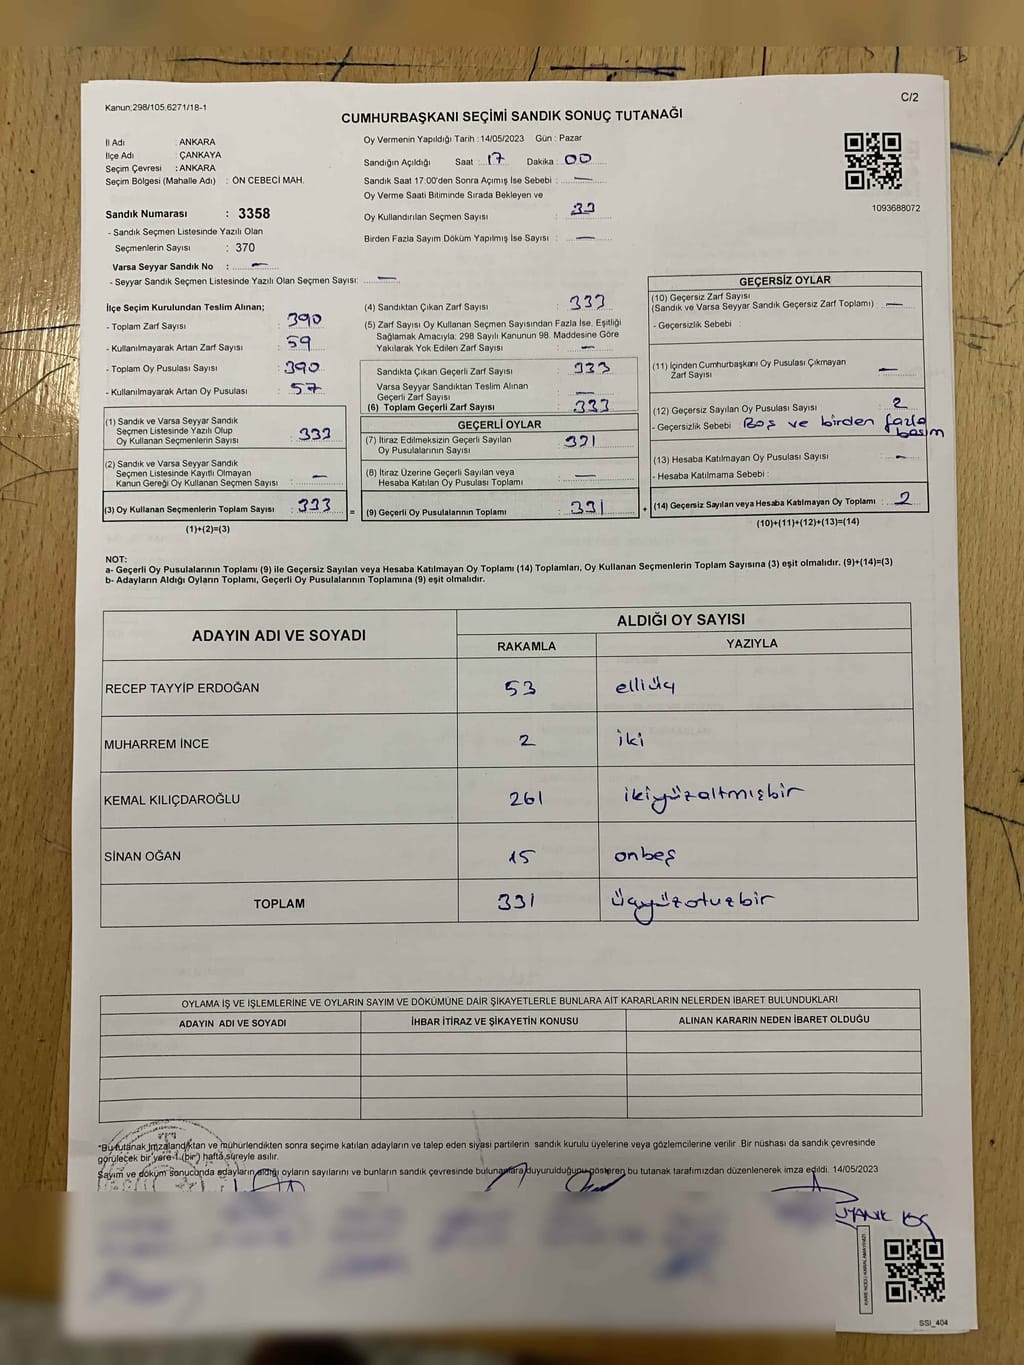 Kanun:298/105,6271/18-1
C/2
CUMHURBAŞKANI SEÇİMİ SANDIK SONUÇ TUTANAĞI
İl Adı : ANKARA
İlçe Adı : ÇANKAYA
Seçim Çevresi : ANKARA
Seçim Bölgesi (Mahalle Adı) : ÖN CEBECİ MAH.
Sandık Numarası : 3358
- Sandık Seçmen Listesinde Yazılı Olan
Seçmenlerin Sayısı : 370
Varsa Seyyar Sandık No : —
- Seyyar Sandık Seçmen Listesinde Yazılı Olan Seçmen Sayısı: —
Oy Vermenin Yapıldığı Tarih : 14/05/2023 Gün : Pazar
Sandığın Açıldığı Saat : 17 Dakika : 00
Sandık Saat 17:00'den Sonra Açımış İse Sebebi : —
Oy Verme Saati Bitiminde Sırada Bekleyen ve
Oy Kullandırılan Seçmen Sayısı :
Birden Fazla Sayım Döküm Yapılmış İse Sayısı : —
1093688072
İlçe Seçim Kurulundan Teslim Alınan;
- Toplam Zarf Sayısı : 390
- Kullanılmayarak Artan Zarf Sayısı : 59
- Toplam Oy Pusulası Sayısı : 390
- Kullanılmayarak Artan Oy Pusulası : 57
(1) Sandık ve Varsa Seyyar Sandık
Seçmen Listesinde Yazılı Olup
Oy Kullanan Seçmenlerin Sayısı : 333
(2) Sandık ve Varsa Seyyar Sandık
Seçmen Listesinde Kayıtlı Olmayan
Kanun Gereği Oy Kullanan Seçmen Sayısı : —
(3) Oy Kullanan Seçmenlerin Toplam Sayısı : 333
(1)+(2)=(3)
(4) Sandıktan Çıkan Zarf Sayısı : 333
(5) Zarf Sayısı Oy Kullanan Seçmen Sayısından Fazla İse, Eşitliği
Sağlamak Amacıyla; 298 Sayılı Kanunun 98. Maddesine Göre
Yakılarak Yok Edilen Zarf Sayısı : —
Sandıkta Çıkan Geçerli Zarf Sayısı : 333
Varsa Seyyar Sandıktan Teslim Alınan
Geçerli Zarf Sayısı : —
(6) Toplam Geçerli Zarf Sayısı : 333
GEÇERLİ OYLAR
(7) İtiraz Edilmeksizin Geçerli Sayılan
Oy Pusulalarının Sayısı : 331
(8) İtiraz Üzerine Geçerli Sayılan veya
Hesaba Katılan Oy Pusulası Toplamı : —
= (9) Geçerli Oy Pusulalarının Toplamı : 331
GEÇERSİZ OYLAR
(10) Geçersiz Zarf Sayısı
(Sandık ve Varsa Seyyar Sandık Geçersiz Zarf Toplamı) : —
- Geçersizlik Sebebi :
(11) İçinden Cumhurbaşkanı Oy Pusulası Çıkmayan
Zarf Sayısı : —
(12) Geçersiz Sayılan Oy Pusulası Sayısı : 2
- Geçersizlik Sebebi : Boş ve birden fazla
basım
(13) Hesaba Katılmayan Oy Pusulası Sayısı : —
- Hesaba Katılmama Sebebi :
+ (14) Geçersiz Sayılan veya Hesaba Katılmayan Oy Toplamı : 2
(10)+(11)+(12)+(13)=(14)
NOT:
a- Geçerli Oy Pusulalarının Toplamı (9) ile Geçersiz Sayılan veya Hesaba Katılmayan Oy Toplamı (14) Toplamları, Oy Kullanan Seçmenlerin Toplam Sayısına (3) eşit olmalıdır. (9)+(14)=(3)
b- Adayların Aldığı Oyların Toplamı, Geçerli Oy Pusulalarının Toplamına (9) eşit olmalıdır.
ADAYIN ADI VE SOYADI
ALDIĞI OY SAYISI
RAKAMLA YAZIYLA
RECEP TAYYİP ERDOĞAN 53 elliüç
MUHARREM İNCE 2 iki
KEMAL KILIÇDAROĞLU 261 ikiyüzaltmışbir
SİNAN OĞAN 15 onbeş
TOPLAM 331 üçyüzotuzbir
OYLAMA İŞ VE İŞLEMLERİNE VE OYLARIN SAYIM VE DÖKÜMÜNE DAİR ŞİKAYETLERLE BUNLARA AİT KARARLARIN NELERDEN İBARET BULUNDUKLARI
ADAYIN ADI VE SOYADI İHBAR İTİRAZ VE ŞİKAYETİN KONUSU ALINAN KARARIN NEDEN İBARET OLDUĞU
*Bu tutanak imzalandıktan ve mühürlendikten sonra seçime katılan adayların ve talep eden siyasi partilerin sandık kurulu üyelerine veya gözlemcilerine verilir. Bir nüshası da sandık çevresinde
görülecek bir yere 1 (bir) hafta süreyle asılır.
Sayım ve döküm sonucunda adayların aldığı oyların sayılarını ve bunların sandık çevresinde bulunanlara duyurulduğunu gösteren bu tutanak tarafımızdan düzenlenerek imza edildi. 14/05/2023
SSI_404